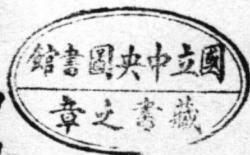 國立中央圖書館
藏書之章